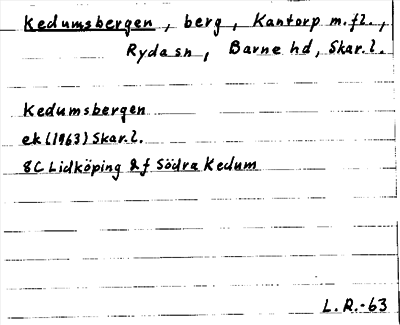 Kedumsbergen, berg, Kantorp m.fl.,
Ryda sn, Barne hd, Skar.l.
Kedumsbergen
ek (1963) Skar.l.
8C Lidköping 2f Södra Kedum
L.R.-63